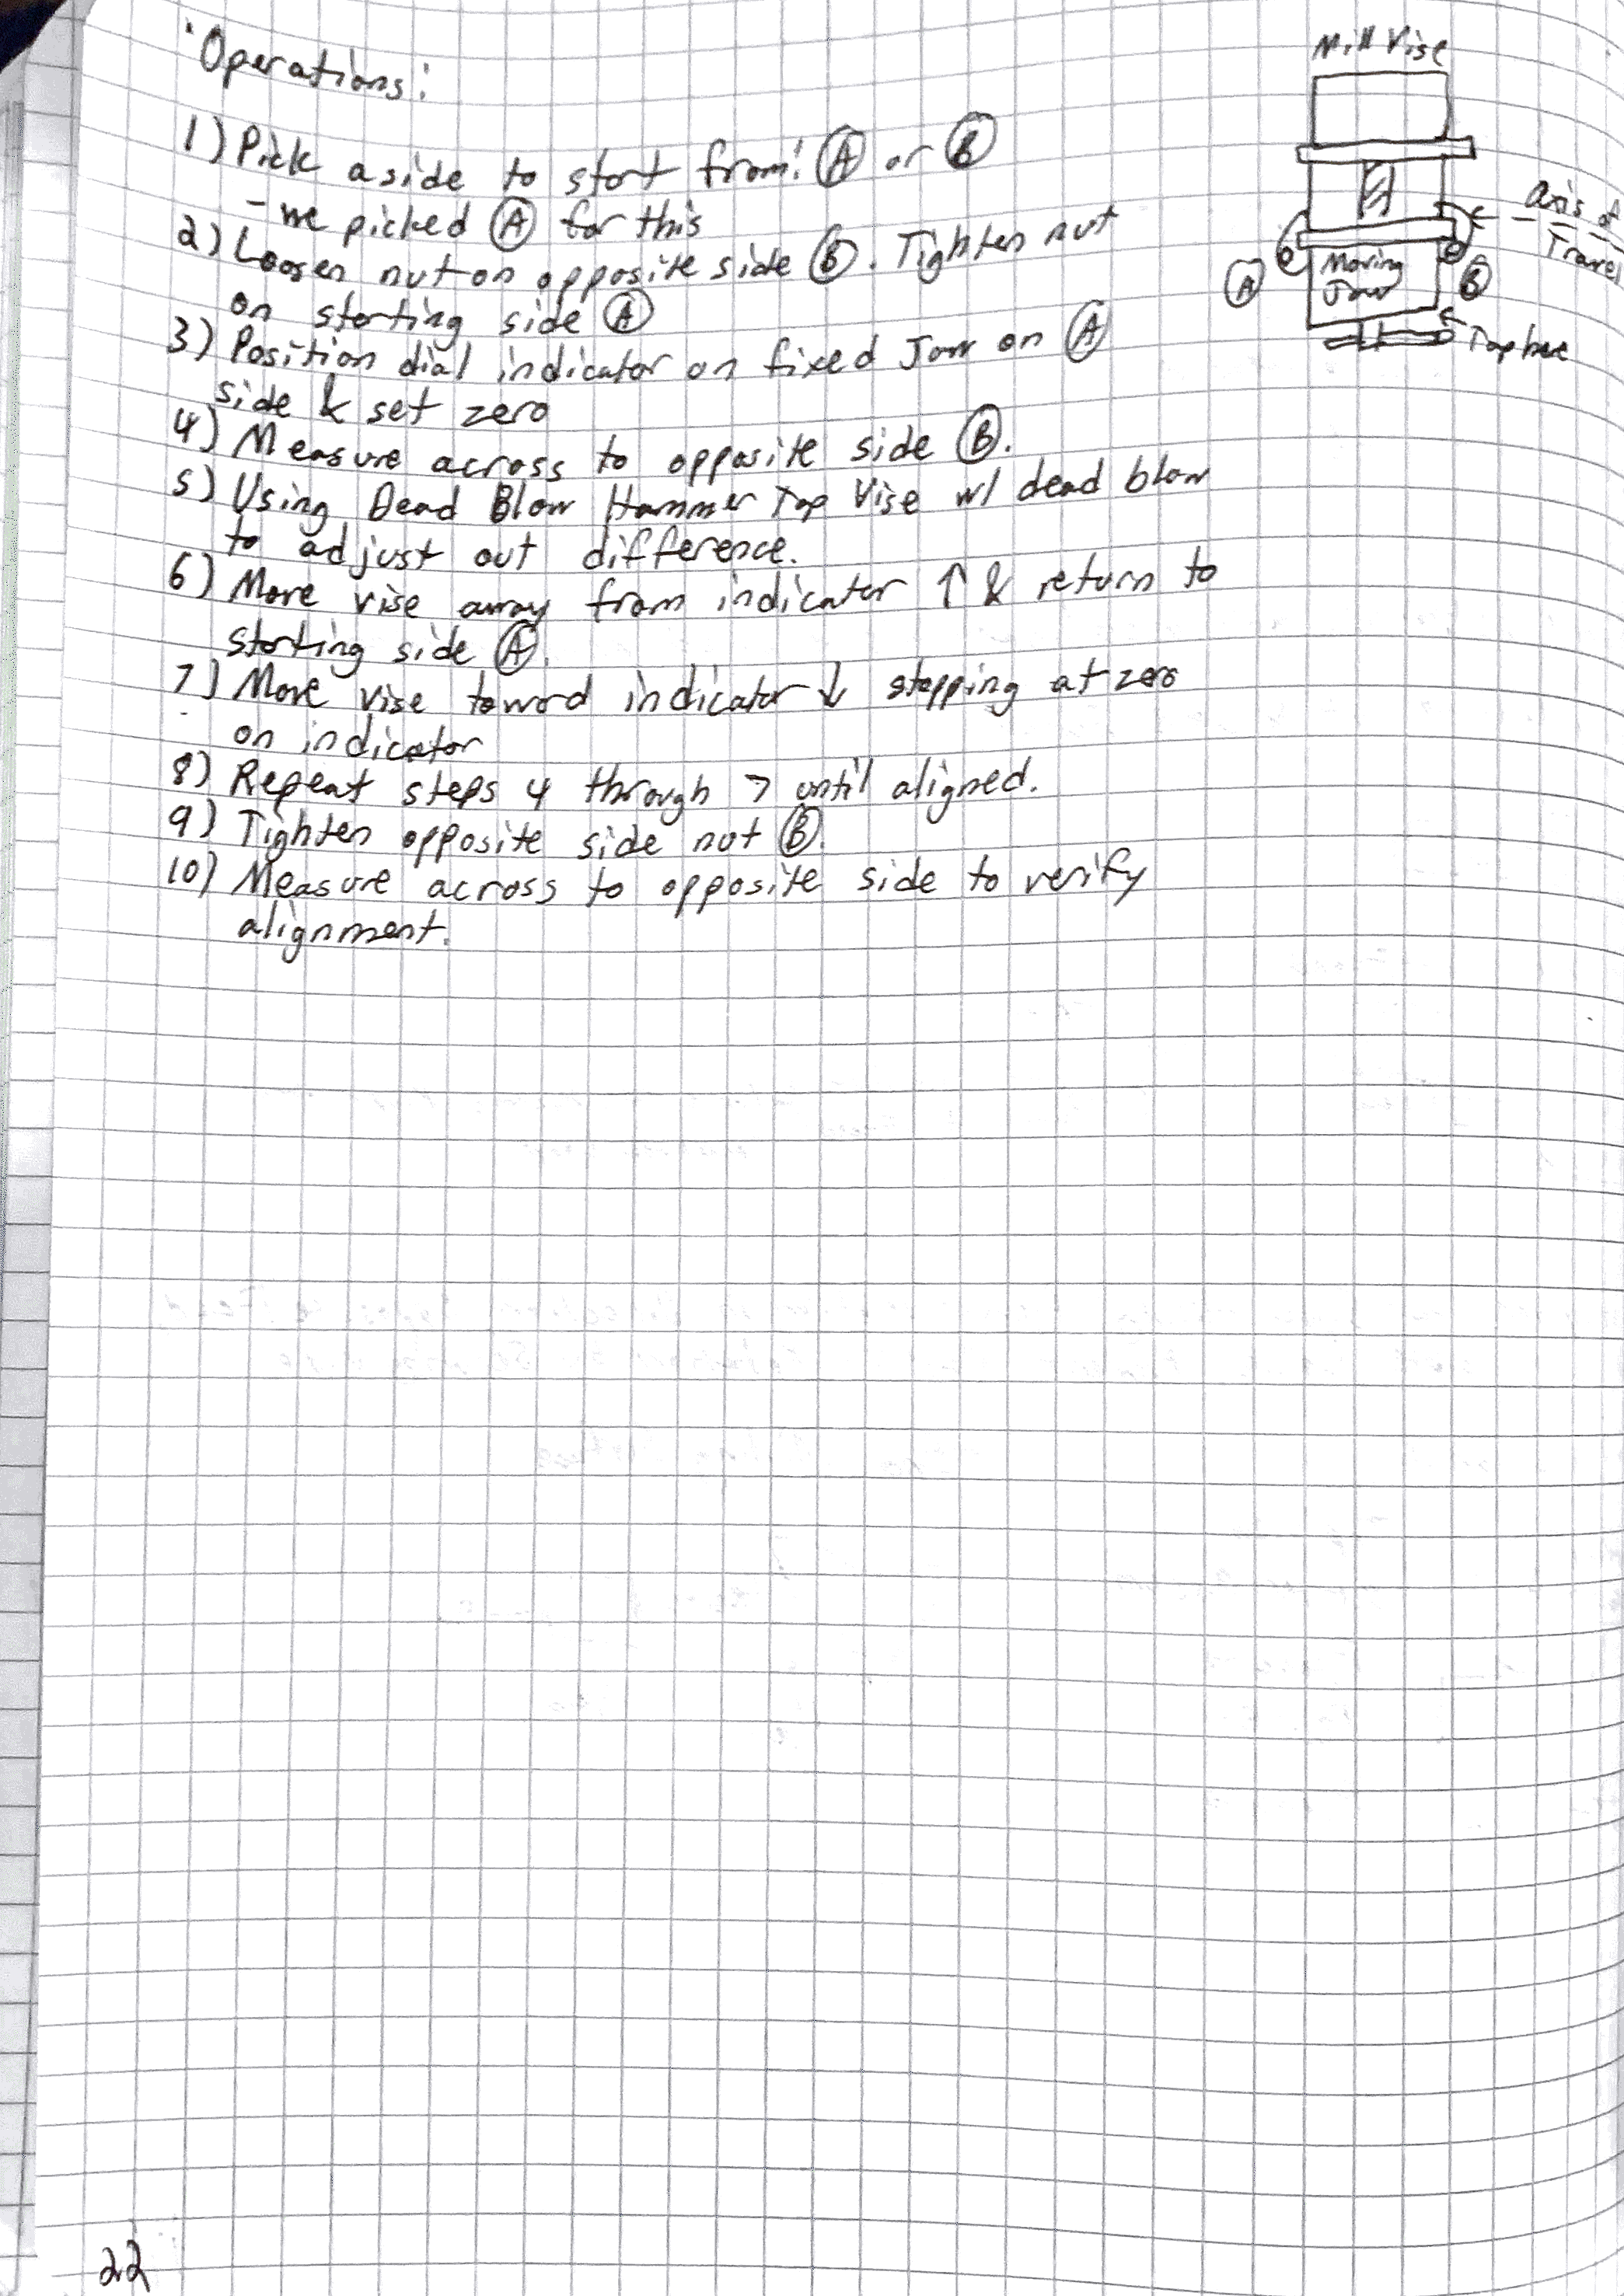 Operations:
1) Pick a side to start from: Ⓐ or Ⓑ
- we picked Ⓐ for this
2) Loosen nut on opposite side Ⓑ. Tighten nut
on starting side Ⓐ
3) Position dial indicator on fixed Jaw on Ⓐ
side & set zero
4) Measure across to opposite side Ⓑ.
5) Using Dead Blow Hammer Tap Vise w/ dead blow
to adjust out difference.
6) Move vise away from indicator ↑ & return to
starting side Ⓐ.
7) Move vise toward indicator ↓ stopping at zero
on indicator
8) Repeat steps 4 through 7 until aligned.
9) Tighten opposite side nut Ⓑ.
10) Measure across to opposite side to verify
alignment.
Mill Vise
Axis of
Travel
Moving
Jaw
Ⓐ
Ⓑ
Tap here
22